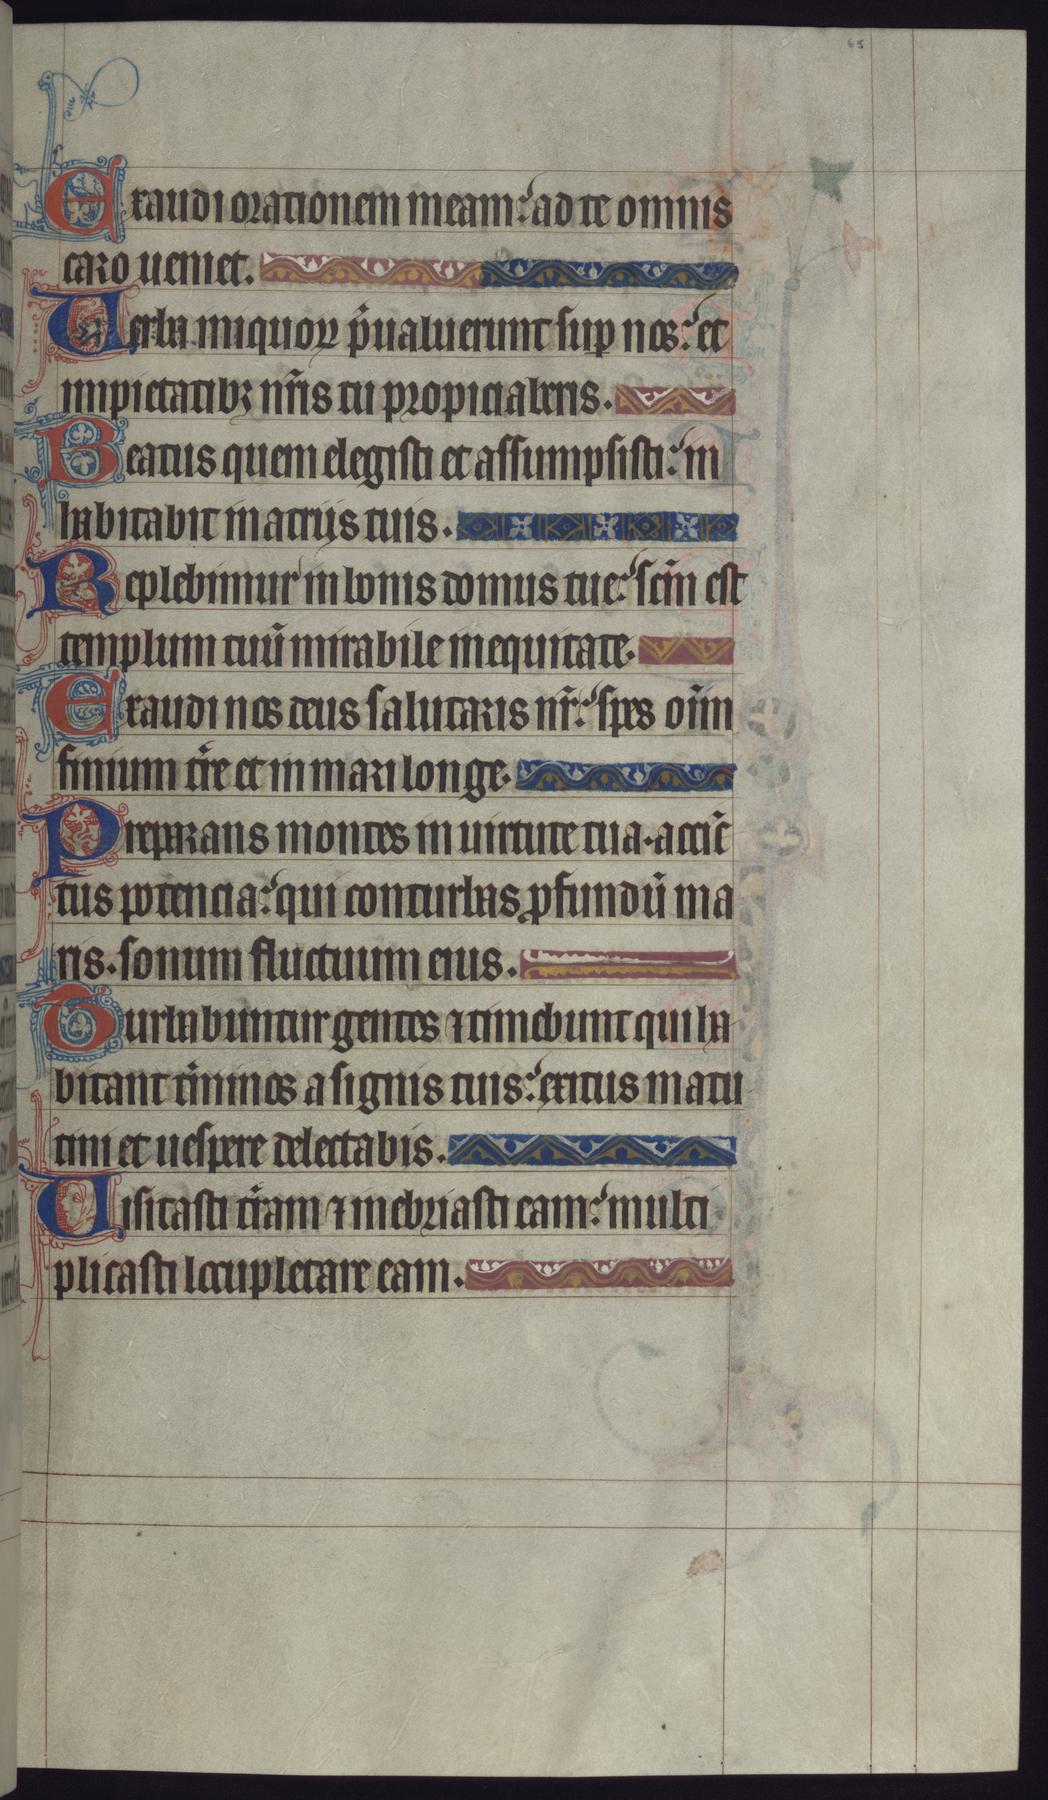 65
Exaudi orationem meam: ad te omnis
caro ueniet.
Uerba iniquoꝝ p̃ualuerunt suꝑ nos: et
impietatibꝫ nr̃is tu propiciaberis.
Beatus quem elegisti et assumpsisti: in
habitabit in atriis tuis.
Replebimur in bonis domus tue: scm̃ est
templum tuũ mirabile in equitate.
Exaudi nos deus salutaris nr̃: spes oĩm
finium tr̃e et in mari longe.
Preparans montes in uirtute tua. accĩc
tus potencia: qui conturbas ꝓfundũ ma
ris. sonum fluctuum eius.
Turbabuntur gentes ⁊ timebunt qui ha
bitant t̃minos a signis tuis: exitus matu
tini et uespere delectabis.
Uisitasti tr̃am ⁊ inebriasti eam: multi
plicasti locupletare eam.